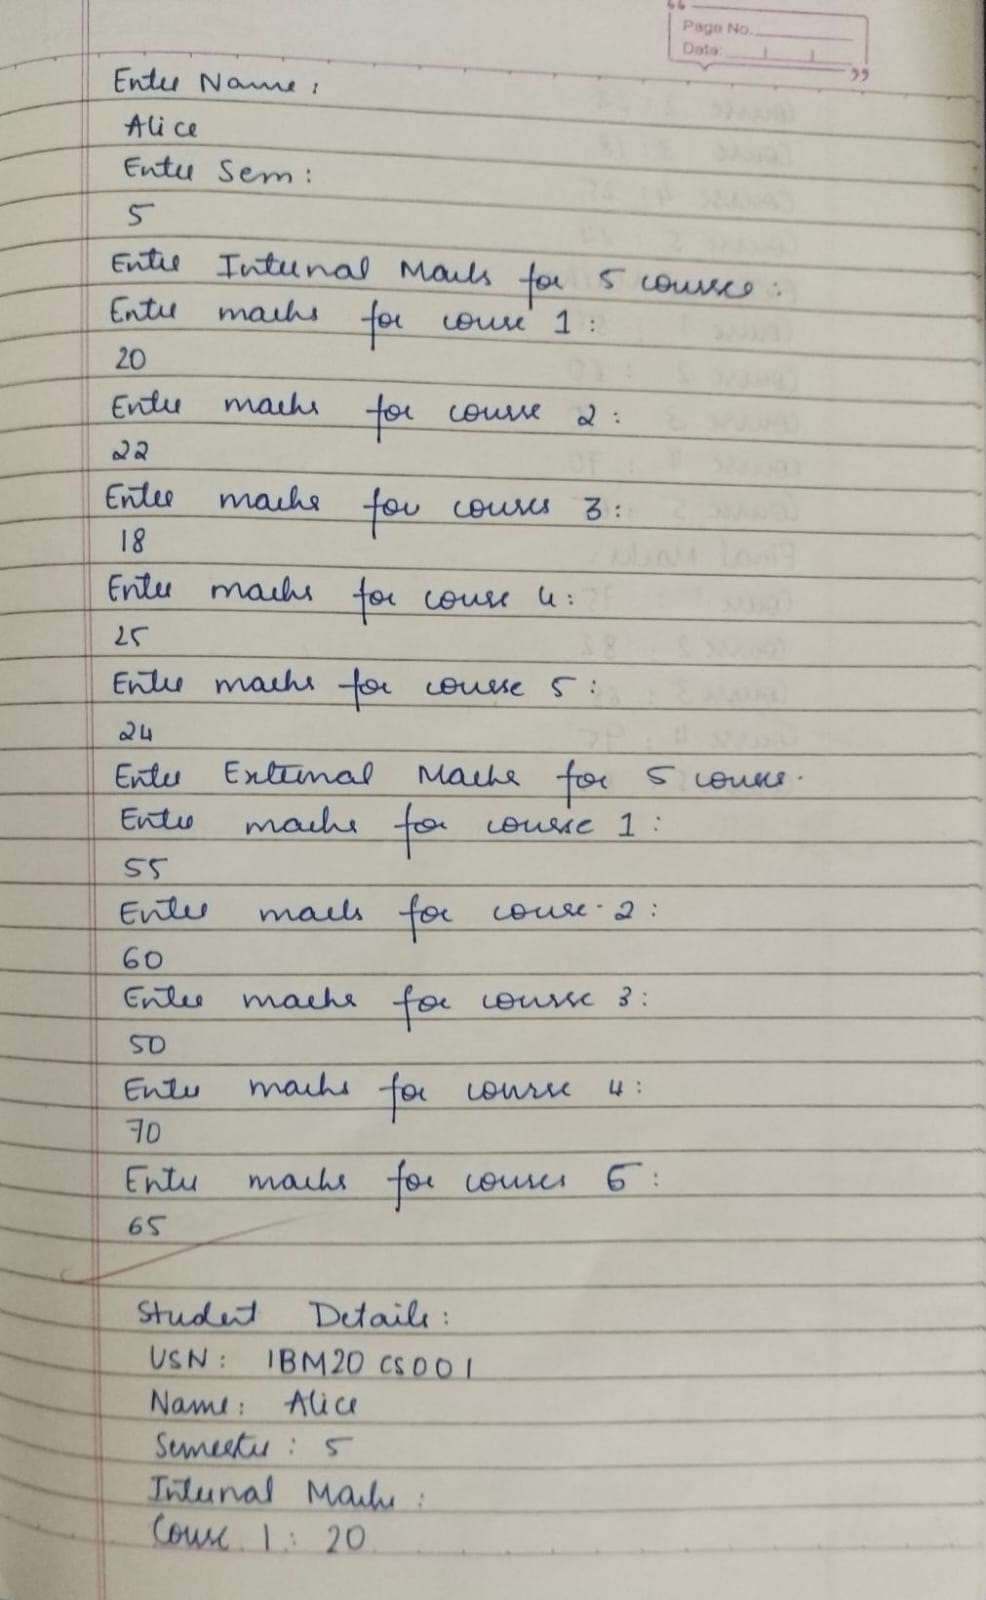 Page No.
Date:
Enter Name :
Alice
Enter Sem :
5
Enter Internal Marks for 5 courses :
Enter marks for course 1 :
20
Enter marks for course 2 :
22
Enter marks for courses 3 :
18
Enter marks for course 4 :
25
Enter marks for course 5 :
24
Enter External Marks for 5 courses.
Enter marks for course 1 :
55
Enter marks for course 2 :
60
Enter marks for course 3 :
50
Enter marks for course 4 :
70
Enter marks for courses 5 :
65
Student Details :
USN : 1BM20 CS001
Name : Alice
Semester : 5
Internal Marks :
Course 1 : 20